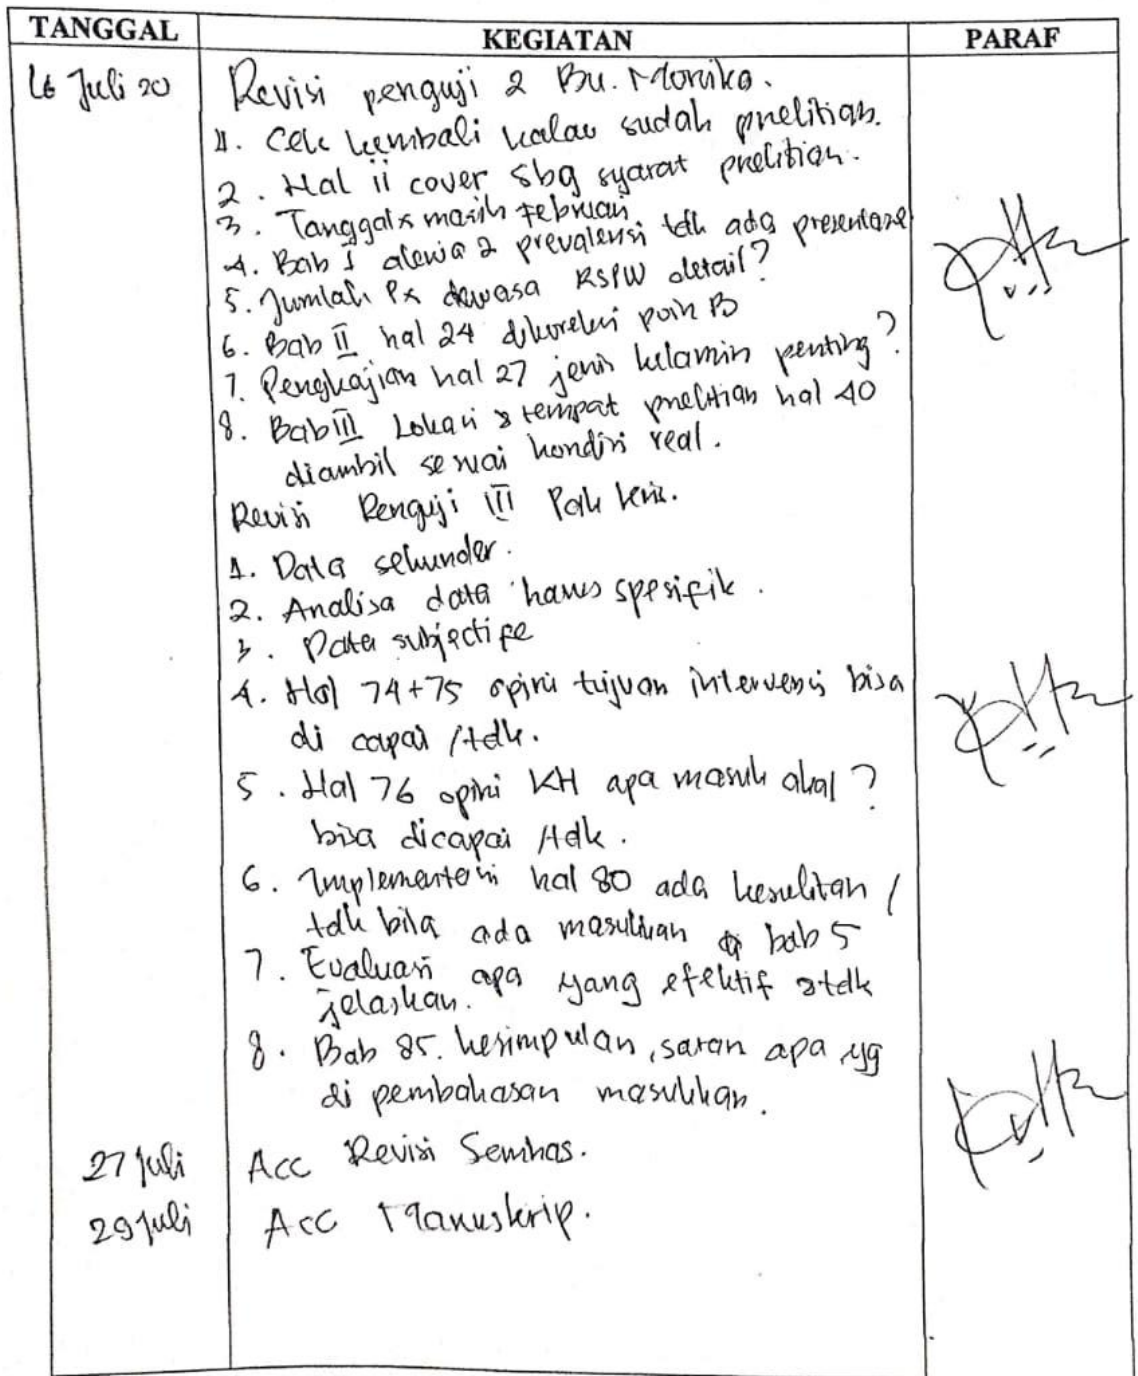 TANGGAL KEGIATAN PARAF
16 Juli 20 Revisi penguji 2 Bu. Monika.
1. Cek kembali kalau sudah pnelitian.
2. Hal ii cover sbg syarat pnelitian.
3. Tanggalx masih Februari
4. Bab I alenia 2 prevalensi tdk ada presentase
5. Jumlah Px dewasa RSPW detail?
6. Bab II hal 24 dikoreksi poin B
7. Pengkajian hal 27 jenis kelamin penting?
8. Bab III Lokasi & tempat pnelitian hal 40
diambil sesuai kondisi real.
Revisi Penguji III Pak
1. Data sekunder.
2. Analisa data harus spesifik.
3. Data subjectife
4. Hal 74+75 opini tujuan intervensi bisa
di capai /tdk.
5. Hal 76 opini KH apa masuk akal?
bisa dicapai /tdk.
6. Implementasi hal 80 ada kesulitan /
tdk bila ada masukkan di bab 5
7. Evaluasi apa yang efektif &tdk
jelaskan.
8. Bab 85. kesimpulan, saran apa yg
di pembahasan masukkan.
27 Juli Acc Revisi Semhas.
29 Juli Acc Manuskrip.